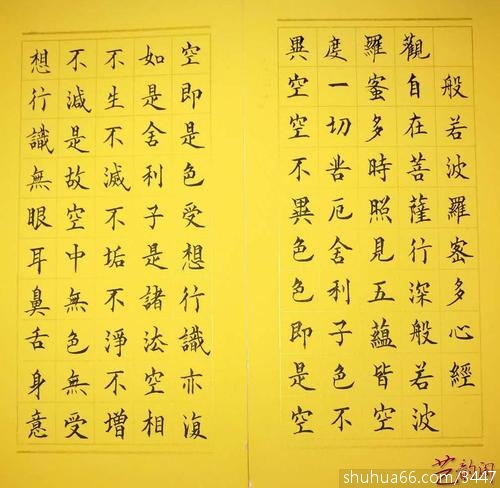 般若波羅密多心經
觀自在菩薩行深般若波
羅蜜多時照見五蘊皆空
度一切苦厄舍利子色不
異空空不異色色即是空
空即是色受想行識亦復
如是舍利子是諸法空相
不生不滅不垢不淨不增
不減是故空中無色無受
想行識無眼耳鼻舌身意
shuhua66.com/3447